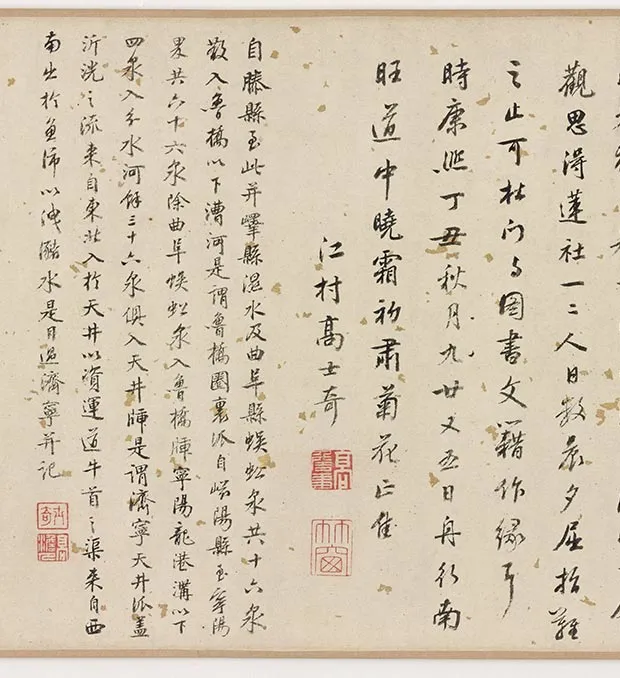 觀思得蓮社一二人日數晨夕屈指難
之止可杜门与图書文籍作缘耳
時康熙丁丑秋月九廿又五日舟行南
旺道中曉霜初肃菊花正佳
江村高士奇
自滕縣至此并嶧縣溫水及曲阜縣蜈蚣泉共十六泉
数入魯橋以下漕河是謂魯橋圈裏派自嶧陽縣至寧陽
界共六十六泉除曲阜蜈蚣泉入魯橋牐寧陽龍港溝以下
四泉入分水河餘三十六泉俱入天井牐是謂濟寧天井派蓋
沂洸之流来自東北入於天井以資運道牛首之渠来自西
南出於魚沛以洩潴水是日過濟寧并记
竹窗